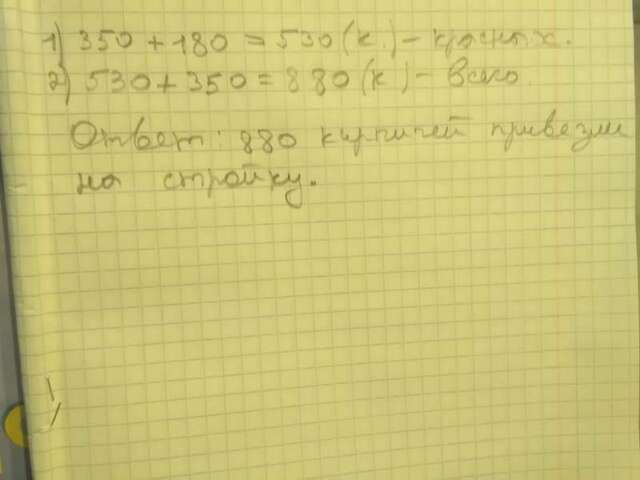 1) 350 + 180 = 530 (к.) - красных.
2) 530 + 350 = 880 (к) - всего
Ответ: 880 кирпичей привезли
на стройку.